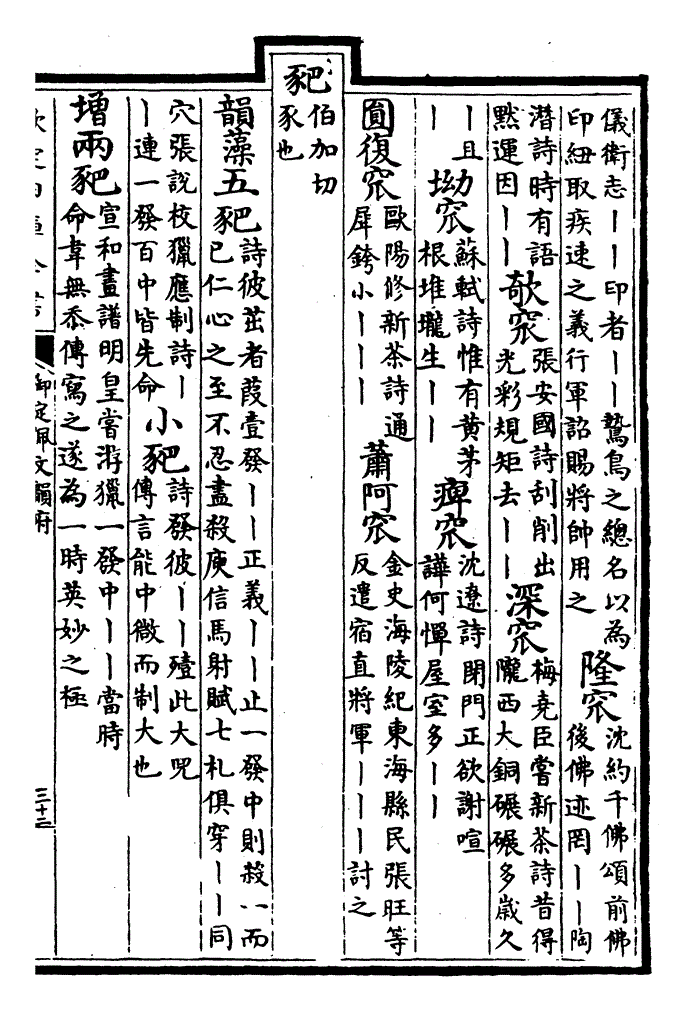 儀衛志丨丨印者丨丨鷙鳥之總名以為
印紐取疾速之義行軍詔賜將帥用之
隆窊
沈約千佛頌前佛
後佛迹罔丨丨陶
潛詩時有語
黙運因丨丨
欹窊
張安國詩刮削出
光彩規矩去丨丨
深窊
梅堯臣嘗新茶詩昔得
隴西大銅碾碾多歲久
丨且
丨
坳窊
蘇軾詩惟有黄茅
根堆壠生丨丨
痺窊
沈遼詩閉門正欲謝喧
譁何憚屋室多丨丨
圎復窊
歐陽修新茶詩通
犀銙小丨丨丨
蕭阿窊
金史海陵紀東海縣民張旺等
反遣宿直將軍丨丨丨討之
豝
伯加切
豕也
韻藻五豝
詩彼茁者葭壹發丨丨正義丨丨止一發中則殺一而
已仁心之至不忍盡殺庾信馬射賦七札俱穿丨丨同
穴張說校獵應制詩丨
丨連一發百中皆先命
小豝
詩發彼丨丨殪此大兕
傳言能中微而制大也
增兩豝
宣和畫譜明皇嘗游獵一發中丨丨當時
命韋無忝傳寫之遂為一時英妙之極
御定佩文韻府
三十三